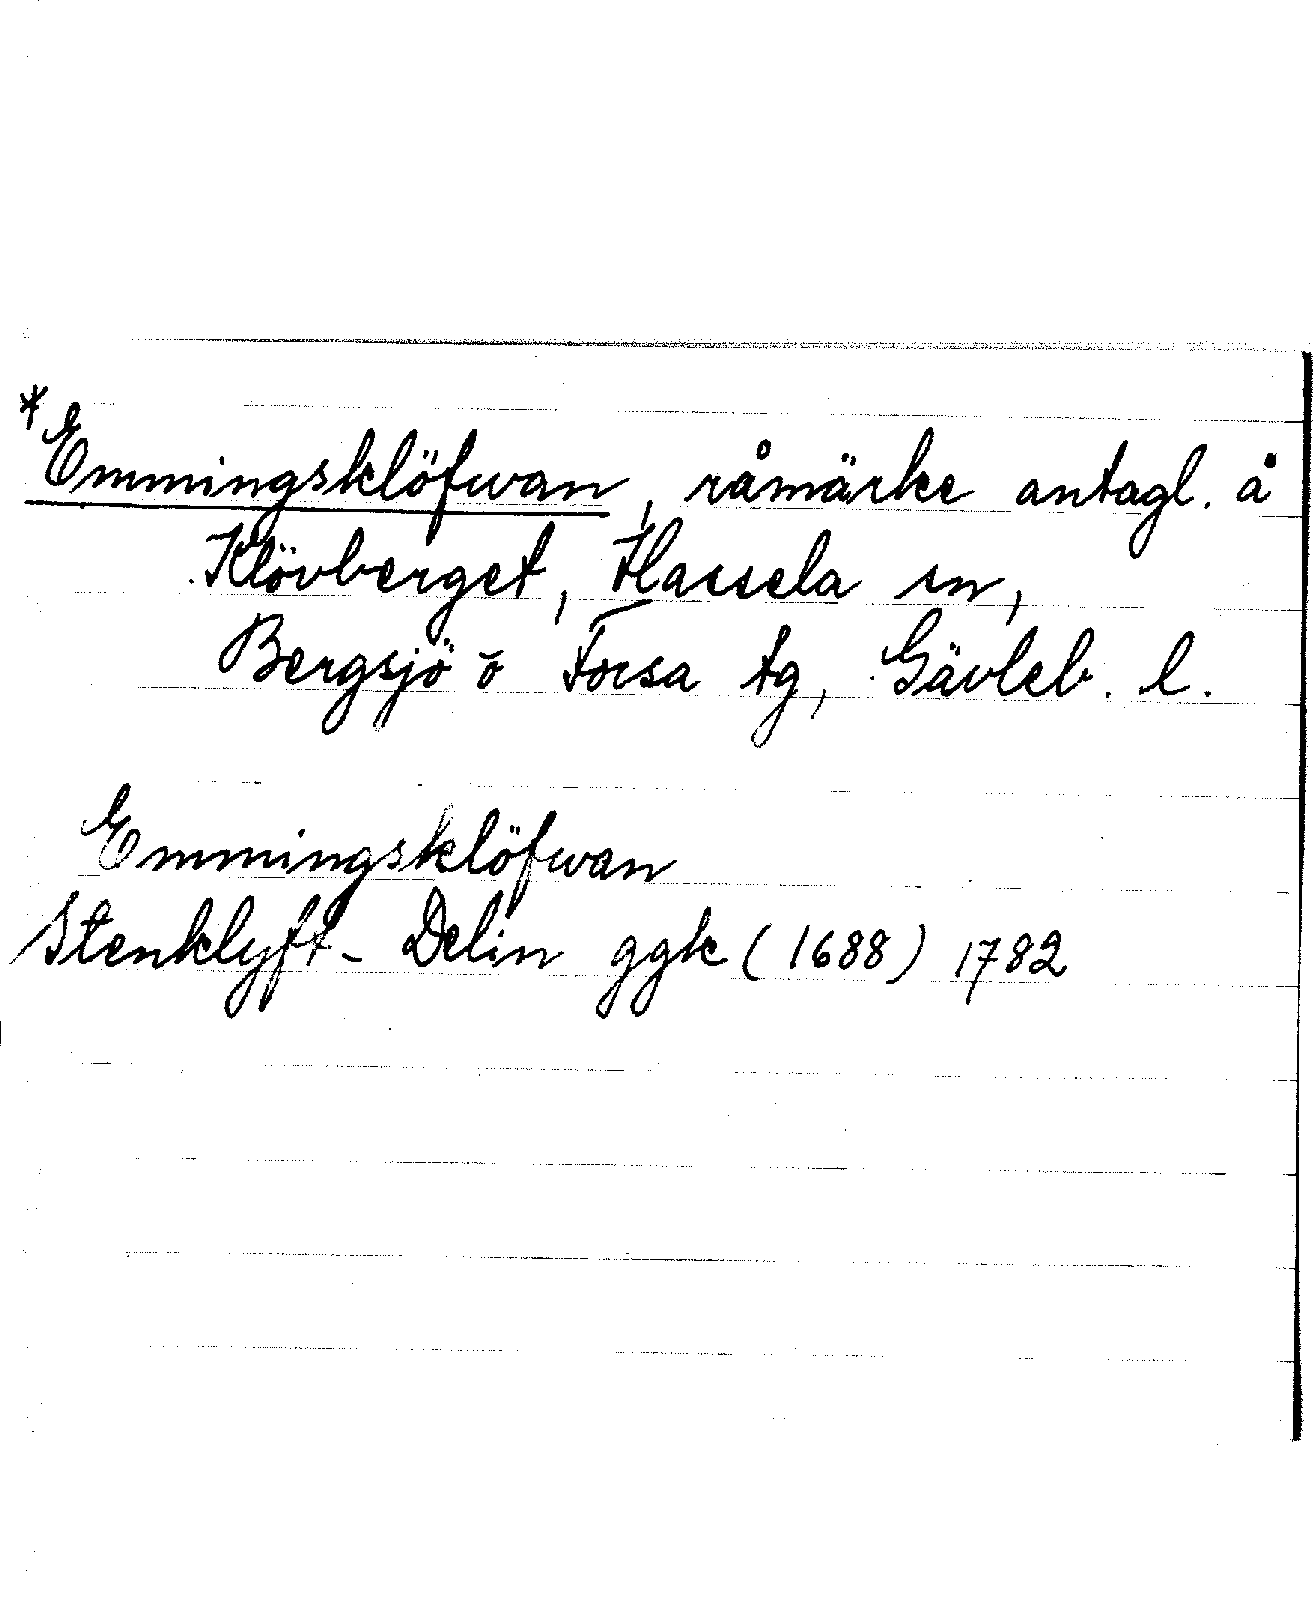 *Emmingsklöfwan, råmärke antagl. å
Klövberget, Hassela sn,
Bergsjö o Forsa tg, Gävleb. l.
Emmingsklöfwan
Stenklyft - Delin ggk (1688) 1782